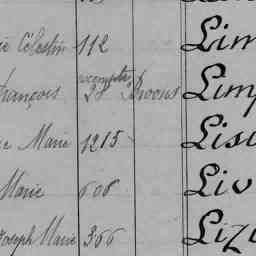 ie Célestin 112 Lim
François 28 Broons Limp
ie Marie 1215 Lisi
Marie 606 Liv
Joseph Marie 366 Lizi